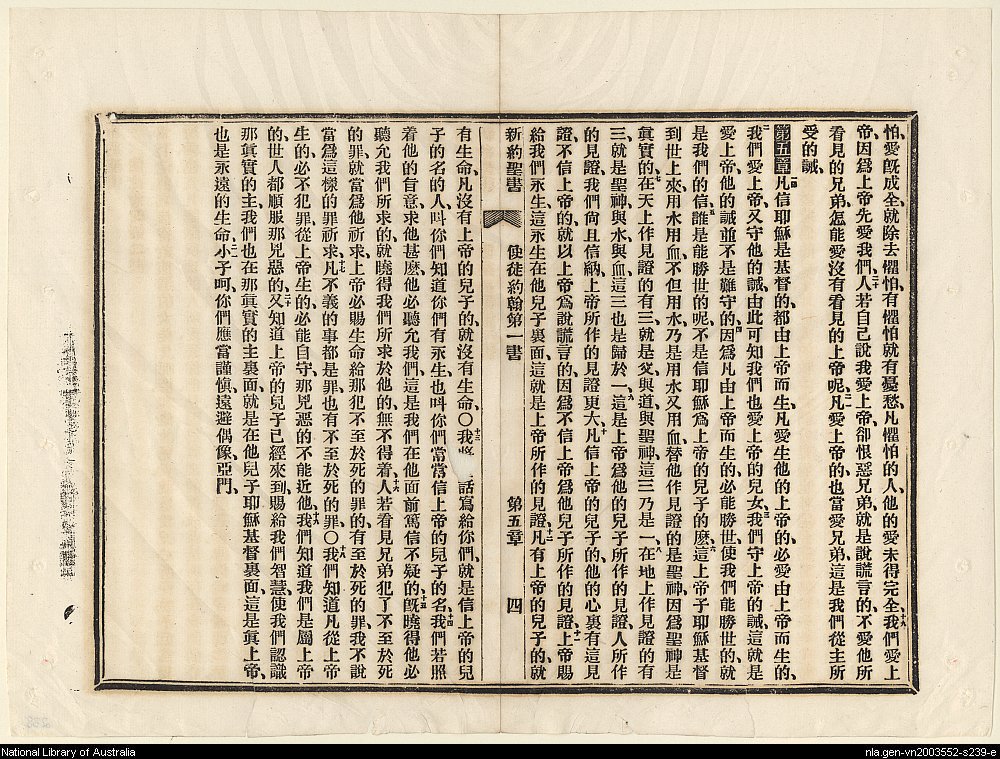 怕、愛既成全、就除去懼怕、有懼怕就有憂愁、凡懼怕的人、他的愛未得完全、十九我們愛上
帝、因爲上帝先愛我們、二十人若自己說我愛上帝、卻恨惡兄弟、就是說謊言的、不愛他所
看見的兄弟、怎能愛沒有看見的上帝呢、二一凡愛上帝的、也當愛兄弟、這是我們從主所
受的誡、
第五章 一凡信耶穌是基督的、都由上帝而生、凡愛生他的上帝的、必愛由上帝而生的、
二我們愛上帝、又守他的誡、由此可知我們也愛上帝的兒女、三我們守上帝的誡、這就是
愛上帝、他的誡並不是難守的、四因爲凡由上帝而生的、必能勝世、使我們能勝世的、就
是我們的信、五誰是能勝世的呢、不是信耶穌爲上帝的兒子的麽、六這上帝子耶穌基督
到世上來、用水用血、不但用水、乃是用水又用血、替他作見證的是聖神、因爲聖神是
眞實的、七在天上作見證的有三、就是父與道與聖神、這三乃是一、八在地上作見證的有
三、就是聖神與水與血、這三也是歸於一、九這是上帝爲他的兒子所作的見證、人所作
的見證、我們尙且信納、上帝所作的見證更大、十凡信上帝的兒子的、他的心裏有這見
證、不信上帝的、就以上帝爲說謊言的、因爲不信上帝爲他兒子所作的見證、十一上帝賜
給我們永生、這永生在他兒子裏面、這就是上帝所作的見證、十二凡有上帝的兒子的、就
新約聖書 使徒約翰第一書 第五章 四
有生命、凡沒有上帝的兒子的、就沒有生命〇十三我 話寫給你們、就是信上帝的兒
子的名的人、呌你們知道你們有永生、也呌你們當當信上帝的兒子的名、十四我們若照
着他的旨意、求他甚麽、他必聽允我們、這是我們在他面前篤信不疑的、十五既曉得他必
聽允我們所求的、就曉得我們所求於他的、無不得着、十六人若看見兄弟犯了不至於死
的罪、就當爲他祈求、上帝必賜生命給那犯不至於死的罪的、有至於死的罪、我不說
當爲這樣的罪祈求、十七凡不義的事都是罪、也有不至於死的罪〇十八我們知道凡從上帝
生的、必不犯罪、從上帝生的、必能自守、那兇惡的不能近他、十九我們知道我們是屬上帝
的、世人都順服那兇惡的、二十又知道上帝的兒子已經來到、賜給我們智慧、使我們認識
那眞實的主、我們也在那眞實的主裏面、就是在他兒子耶穌基督裏面、這是眞上帝、
也是永遠的生命、二一小子呵、你們應當謹愼、遠避偶像、亞門、
National Library of Australia
nla.gen-vn2003552-s239-e